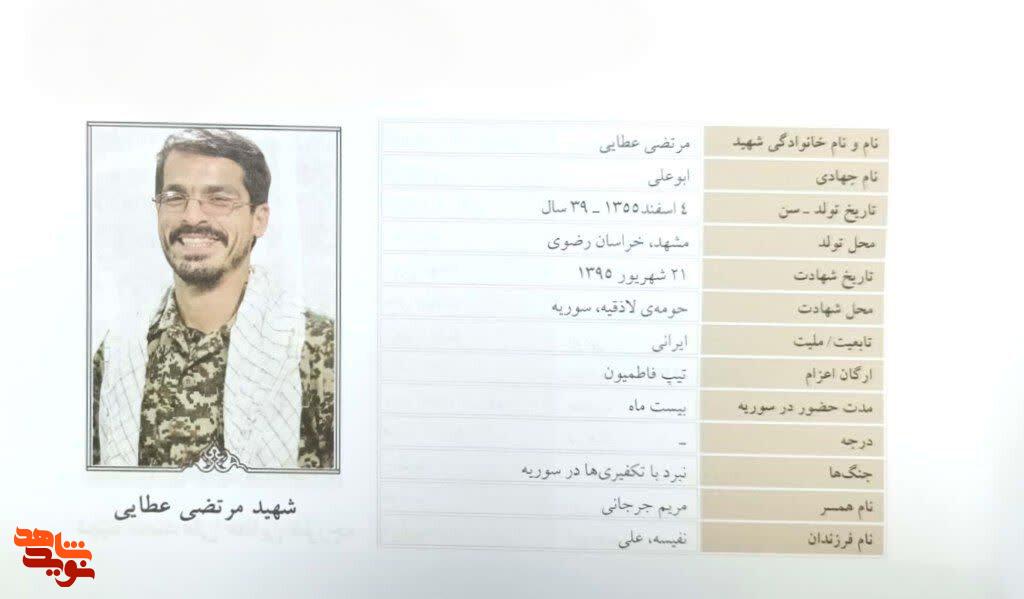 نام و نام خانوادگی شهید مرتضی عطایی
نام جهادی ابوعلی
تاریخ تولد ـ سن ٤ اسفند ١٣٥٥ ـ ٣٩ سال
محل تولد مشهد، خراسان رضوی
تاریخ شهادت ٢١ شهریور ١٣٩٥
محل شهادت حومه‌ی لاذقیه، سوریه
تابعیت/ ملیت ایرانی
ارگان اعزام تیپ فاطمیون
مدت حضور در سوریه بیست ماه
درجه ـ
جنگ‌ها نبرد با تکفیری‌ها در سوریه
نام همسر مریم جرجانی
نام فرزندان نفیسه، علی
شهید مرتضی عطایی
نوید شاهد